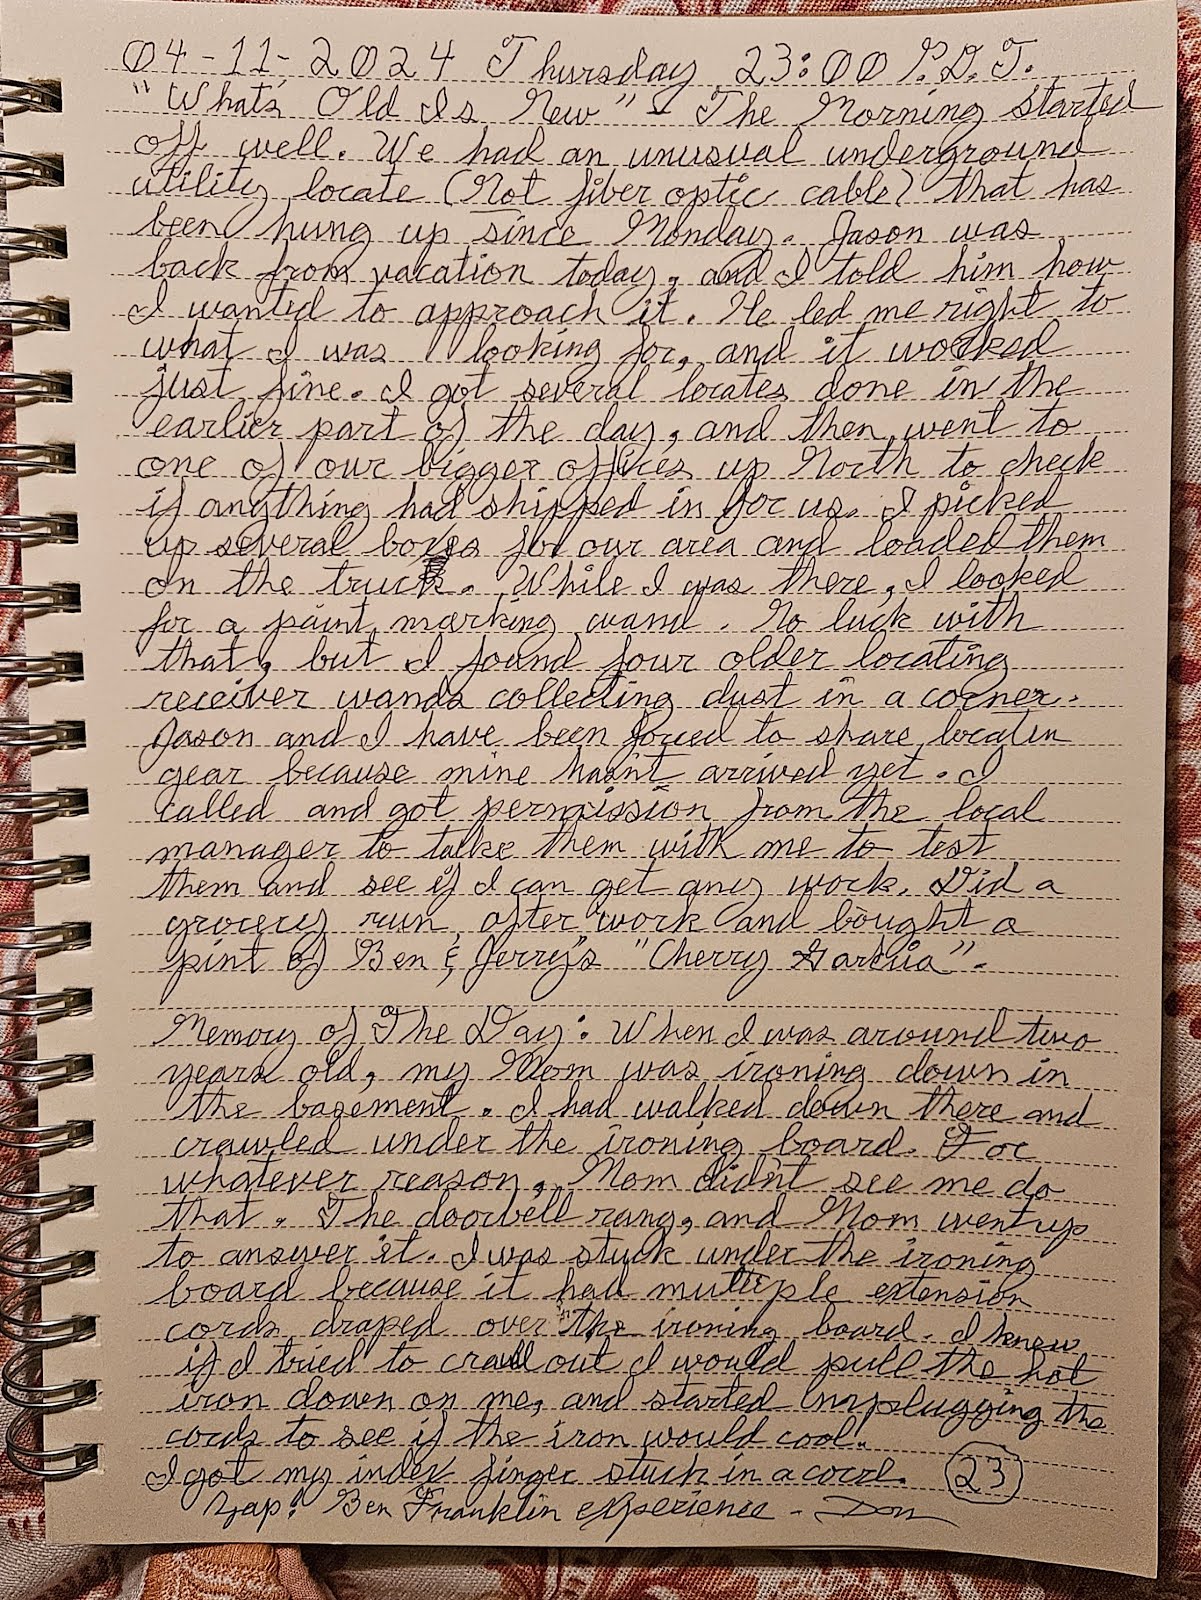 04-11-2024 Thursday 23:00 P.D.T.
"What's Old Is New" - The Morning started
off well. We had an unusual underground
utility locate (Not fiber optic cable) that has
been hung up since Monday. Jason was
back from vacation today, and I told him how
I wanted to approach it. He led me right to
what I was looking for, and it worked
just fine. I got several locates done in the
earlier part of the day, and then went to
one of our bigger offices up North to check
if anything had shipped in for us. I picked
up several boxes for our area and loaded them
on the truck. While I was there, I looked
for a paint marking wand. No luck with
that, but I found four older locating
receiver wands collecting dust in a corner.
Jason and I have been forced to share locatin
gear because mine hasn't arrived yet. I
called and got permission from the local
manager to take them with me to test
them and see if I can get any work. Did a
grocery run after work and bought a
pint of Ben & Jerry's "Cherry Garcia".
Memory of The Day: When I was around two
years old, my Mom was ironing down in
the basement. I had walked down there and
crawled under the ironing board. For
whatever reason, Mom didn't see me do
that. The doorbell rang, and Mom went up
to answer it. I was stuck under the ironing
board because it had multiple extension
cords draped over the ironing board. I knew
if I tried to crawl out I would pull the hot
iron down on me, and started unplugging the
cords to see if the iron would cool.
I got my index finger stuck in a cord. 23
Zap! Ben Franklin experience - Don